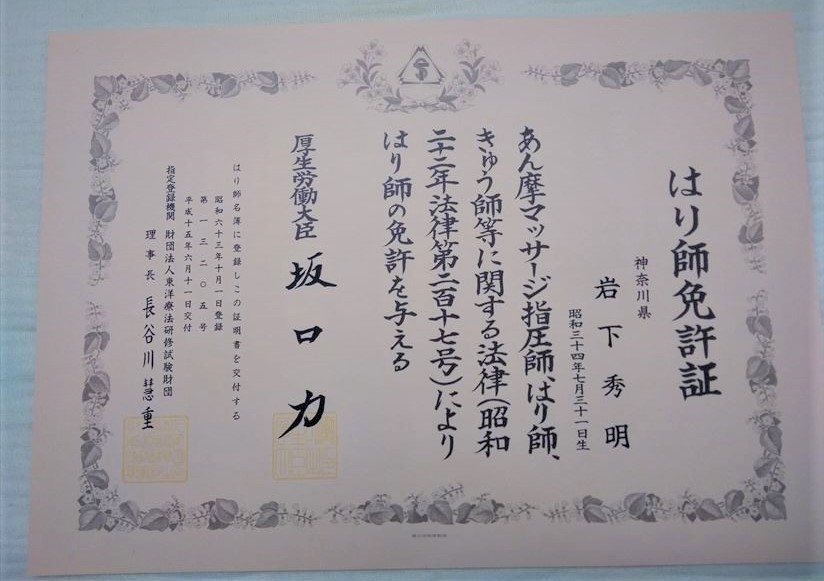 はり師免許証
神奈川県
岩下秀明
昭和三十四年七月三十一日生
あん摩マッサージ指圧師、はり師、
きゅう師等に関する法律(昭和
二十二年法律第二百十七号)により
はり師の免許を与える
厚生労働大臣 坂口力
はり師名簿に登録しこの証明書を交付する
昭和六十三年十月一日登録
第一三二〇五号
平成十五年六月十一日交付
指定登録機関 財団法人東洋療法研修試験財団
理事長 長谷川慧重